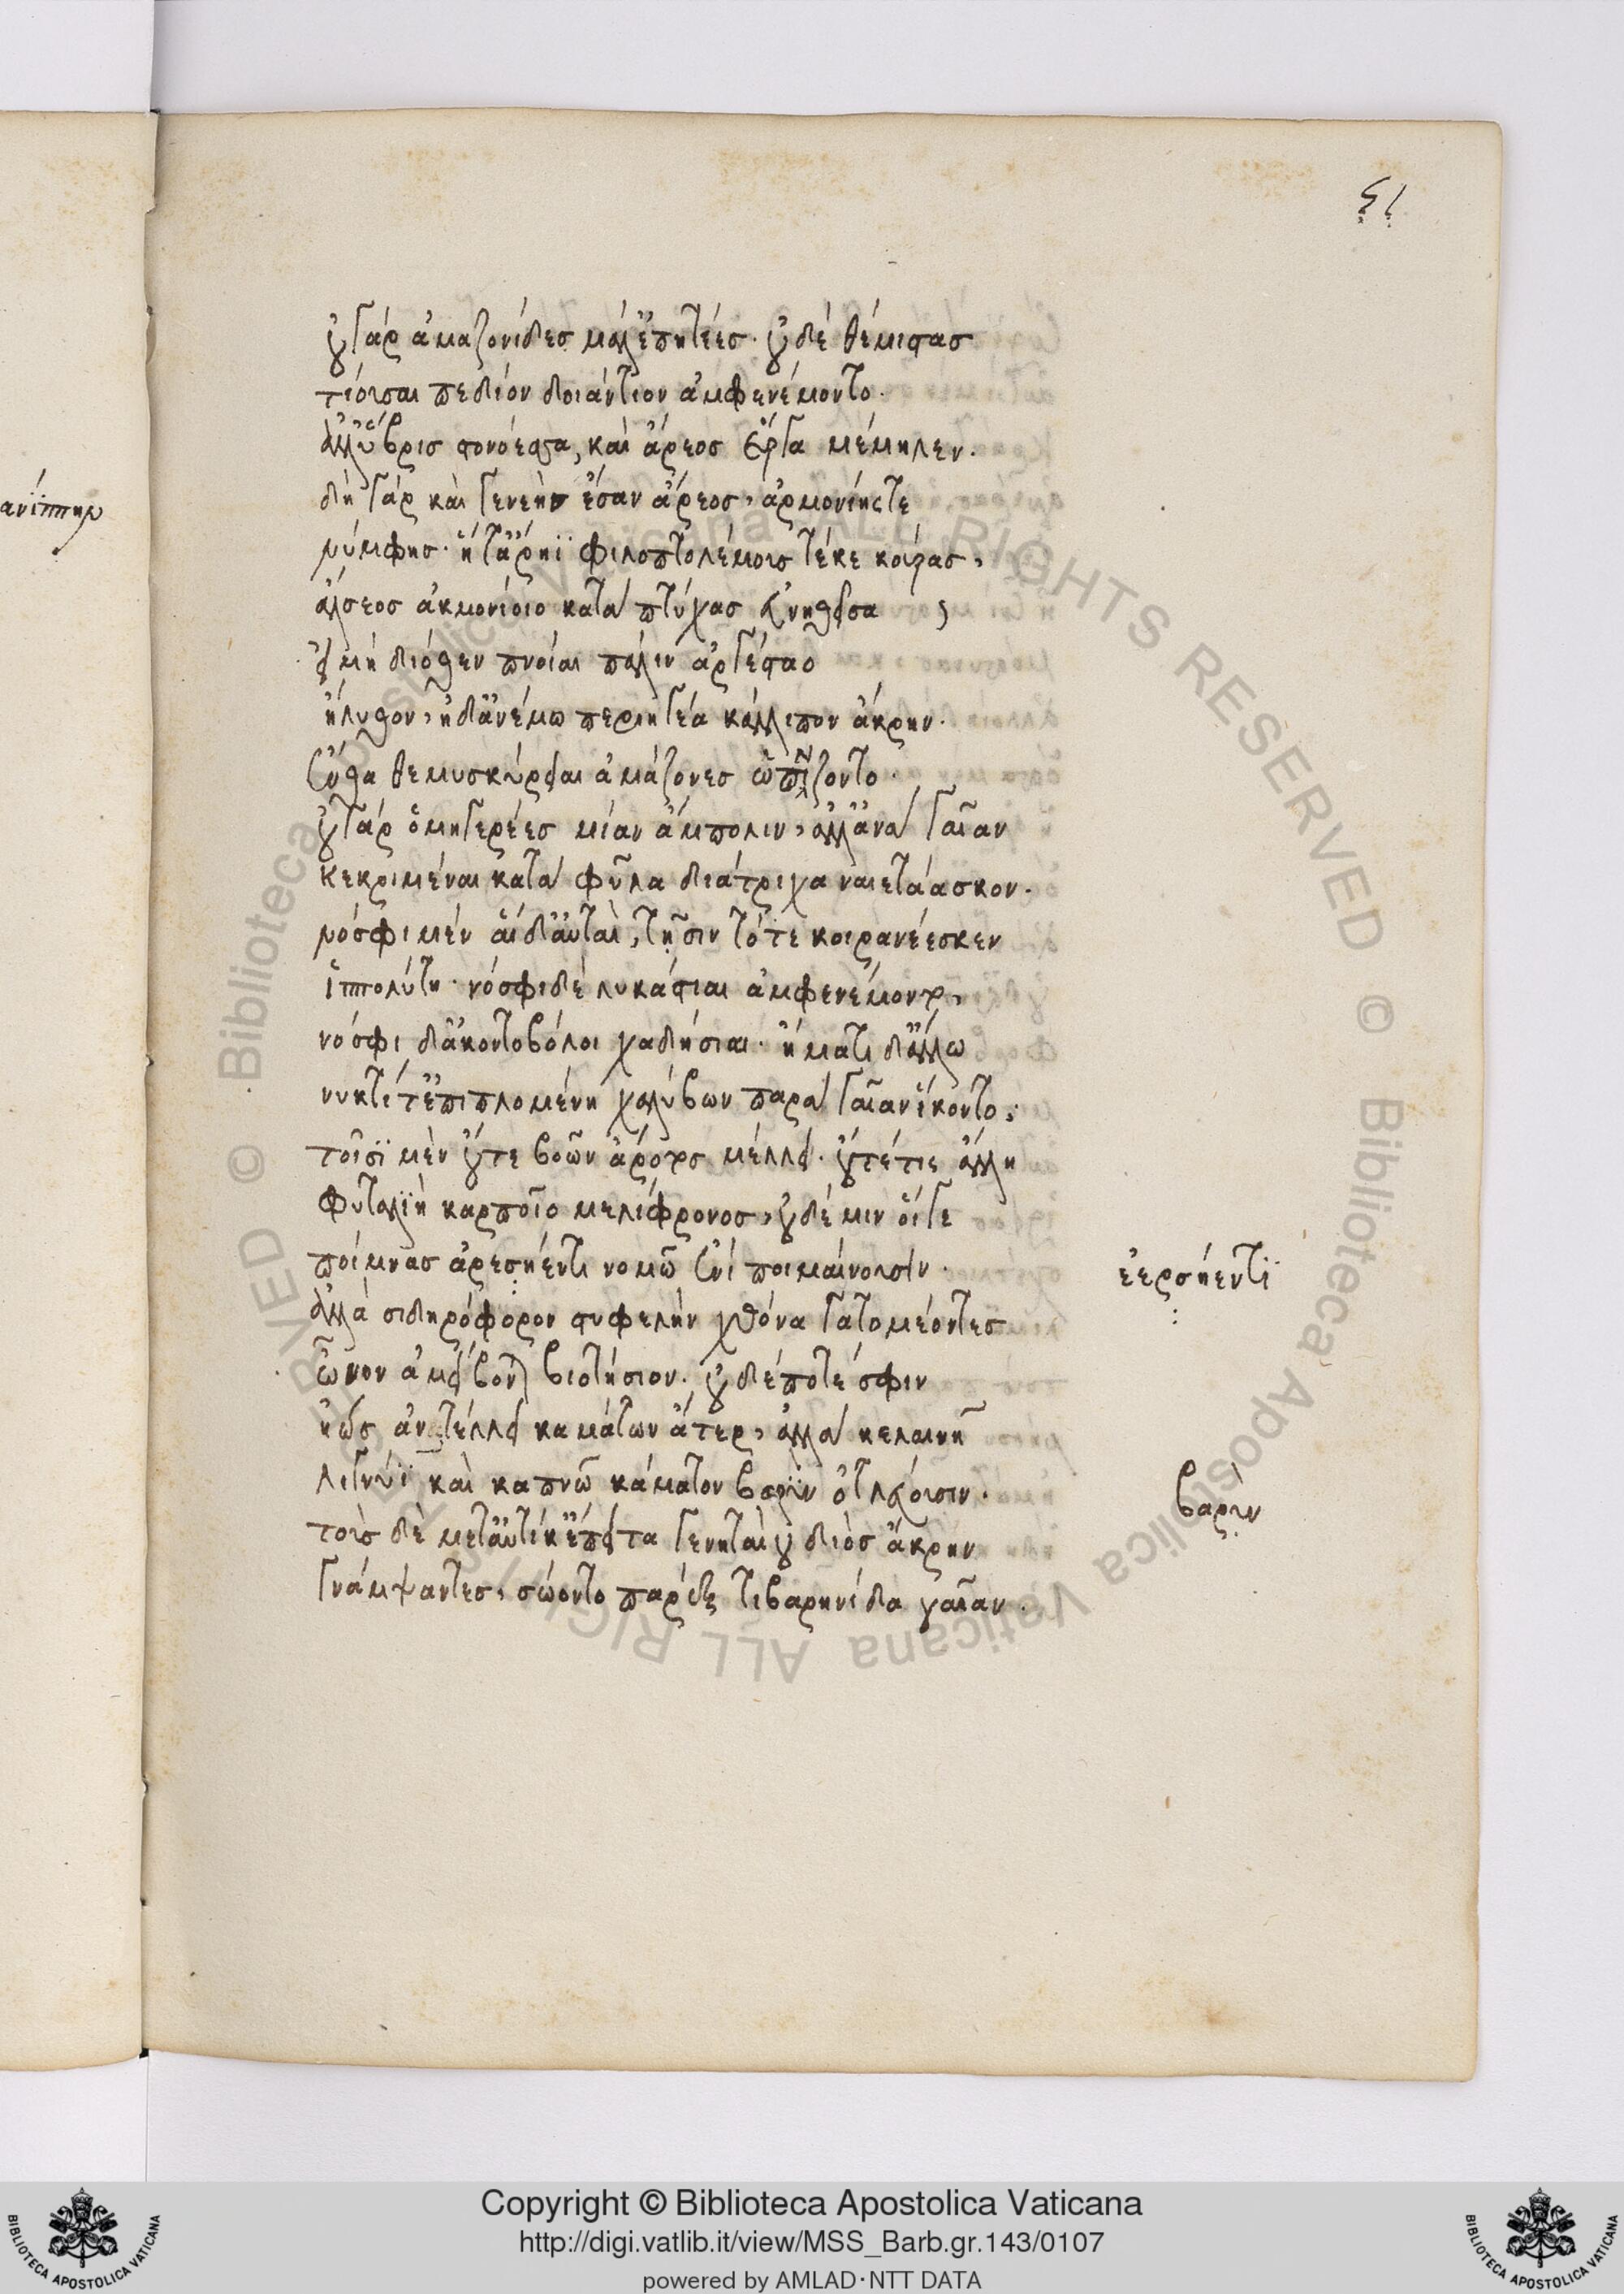 51
οὐ γάρ ἀμαζονίδες μάλ' ἐπητέες· οὐδὲ θέμιστας
τίουσαι πεδίον δοιάντιον ἀμφενέμοντο·
ἀλλ' ὕβρις στονόεσσα, καὶ ἄρεος ἔργα μέμηλεν·
δὴ γὰρ καὶ γενεὴν ἔσαν ἄρεος, ἁρμονίης τε
νύμφης· ἥ τ' ἄρηϊ φιλοπτολέμους τέκε κούρας,
ἄλσεος ἀκμονίοιο κατὰ πτύχας εὐνηθεῖσα ,
εἰ μὴ διόθεν πνοίαι πάλιν ἀργέσταο
ἤλυθον, ἡ δ' ἀνέμω περιηγέα κάλλιπον ἄκρην·
ἔνθα θεμυσκύρειαι ἀμάζονες ὡπλίζοντο·
οὐ γὰρ ὁμηγερέες μίαν ἀμπόλιν, ἀλλ' ἀνὰ γαῖαν
κεκριμέναι κατὰ φῦλα διάτριχα ναιετάασκον·
νόσφι μέν αἵδ' αὐταὶ, τῆσιν τότε κοιρανέεσκεν
ἱππολύτη· νόσφι δὲ λυκάστιαι ἀμφενέμοντο,
νόσφι δ' ἀκοντοβόλοι χαδήσιαι· ἤματι δ' ἄλλω
νυκτί τ' ἐπιπλομένη χαλύβων παρὰ γαῖαν ἵκοντο,
τοῖσϊ μὲν οὔτε βοῶν ἄροτρος μέλλει· οὔτέ τις ἄλλη
φυταλϊὴ καρποῖο μελίφρονος, οὐδέ μιν οἵγε
ποίμνας ἀρεσήεντι νομῶ ἔνι ποιμαίνουσιν·
ἐερσήεντϊ
ἀλλὰ σιδηρόφορον στυφελὴν χθόνα γατομέοντες
ὦνον ἀμείβονται βιοτήσιον· οὐδέ ποτέ σφιν
ἠὼς ἀντέλλει καμάτων ἄτερ, ἀλλὰ κελαινῆ
λιγνύϊ καὶ καπνῶ κάματον βαρϊὺν ὀτλεύουσιν·
βαρὺν
τοὺς δὲ μετ' αὐτίκ' ἔπειτα γενηταὶου διὸς ἄκρην
γνάμψαντες, σώοντο παρὲξ τιβαρηνίδα γαῖαν·
Copyright © Biblioteca Apostolica Vaticana
http://digi.vatlib.it/view/MSS_Barb.gr.143/0107
powered by AMLAD·NTT DATA